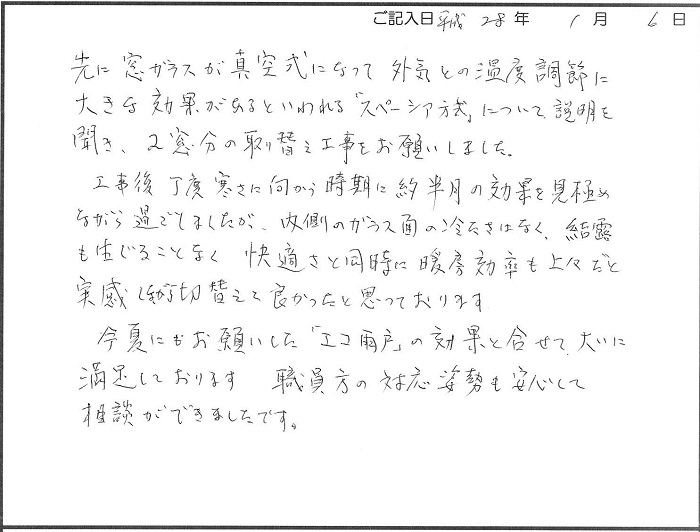 ご記入日 平成 28 年 1 月 6 日
先に窓ガラスが真空式になって外気との温度調節に
大きな効果があるといわれる「スペーシア方式」について説明を
聞き、2窓分の取り替え工事をお願いしました。
工事後丁度寒さに向かう時期に約半月の効果を見極め
ながら過ごしましたが、内側のガラス面の冷たさはなく、結露
も生じることなく 快適さと同時に暖房効率も上々だと
実感しながら切替えて良かったと思っております
今夏にもお願いした「エコ雨戸」の効果と合せて、大いに
満足しております 職員方の対応姿勢も安心して
相談ができましたです。